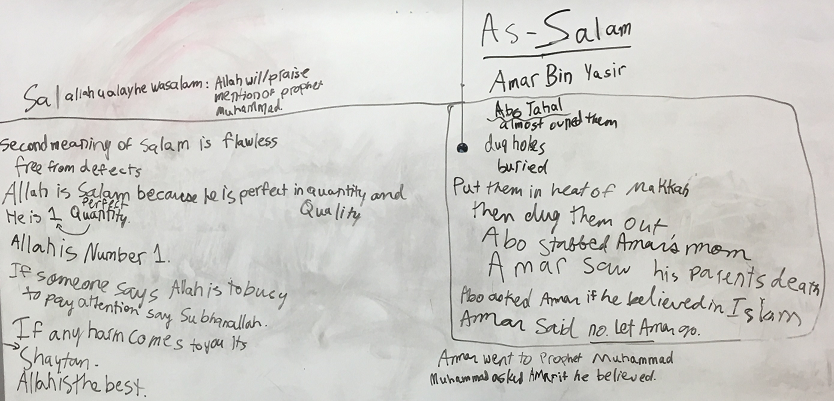 Salallahualayhe wasalam: Allah will praise
mention of prophet
muhammad.
second meaning of salam is flawless
free from defects
Allah is Salam because he is perfect in quantity and
Quality
He is 1 perfect Quantity.
Allah is Number 1.
If someone says Allah is to busy
to pay attention say Subhanallah.
If any harm comes to you its
Shaytan.
Allah is the best.
As-Salam
Amar Bin Yasir
Abo Jahal
almost owned them
dug holes
buried
Put them in heat of Makkah
then dug them out
Abo stabbed Amar's mom
Amar saw his parents death
Abo asked Amar if he believed in Islam
Amar said no. Let Amar go.
Amar went to Prophet Muhammad
Muhammad asked Amar if he believed.